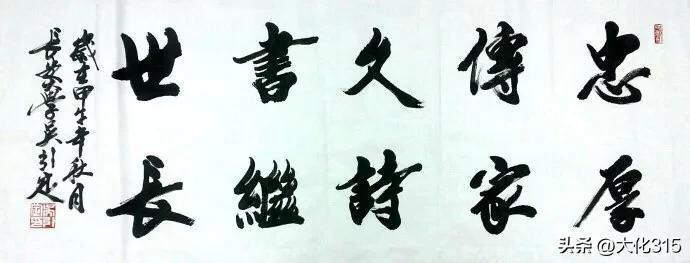 忠厚
傳家
久詩
書繼
世長
歲在甲年秋月
長安
头条 @大化315